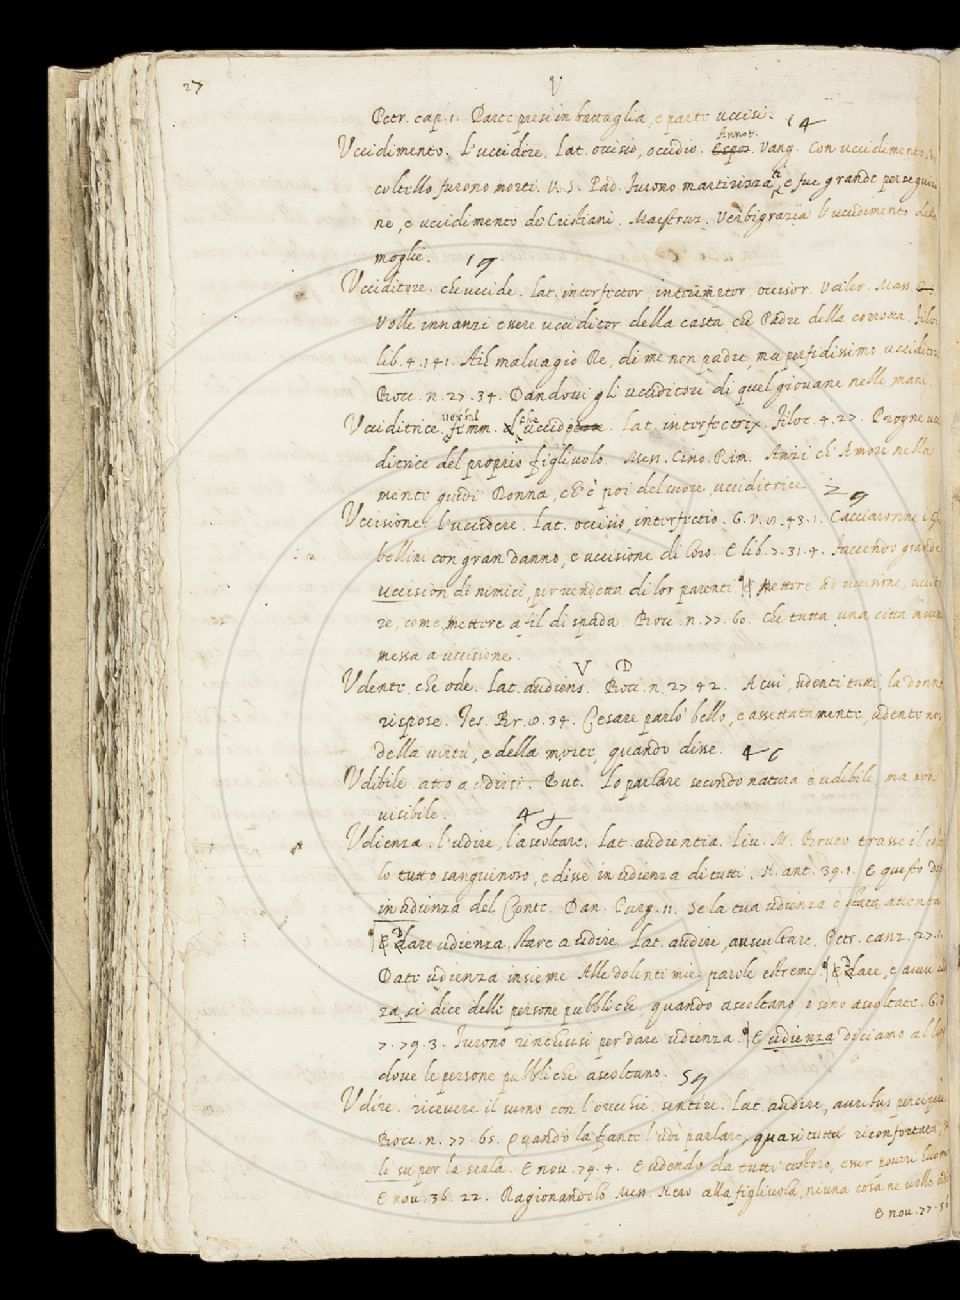 27
V
Petr. cap. 1. Parte presi in battaglia, e parte uccisi.
14
Annot.
Vccidimento. L'uccidere. Lat. occisio, occidio. Espos. Vang. Con uccidimento di
coltello furono morti. V. S. Pad. Furono martirizzati, e fue grande perseguizio
ne, e uccidimento de Cristiani. Maestruz. Verbigrazia l'uccidimento della
moglie.
19
Vcciditore. che uccide. Lat. interfector, interemptor, occisor. Valer. Mass.
Volle innanzi essere ucciditor della casta, che Padre della corrotta. Filoc.
lib. 4. 141. Ahi malvagio Re, di me non padre, ma perfidissimo ucciditor
Bocc. n. 27. 34. Dandovi gli ucciditori di quel giovane nelle mani.
Vcciditrice. verbal. femm. che uccide. Lat. interfectrix. Filoc. 4. 27. Progne uc
ciditrice del proprio figlivolo. Mess. Cino. Rim. Anzi ch'Amore nella
mente guidi Donna, ch'è poi del cuore ucciditrice.
29
Vccisione. l'uccidere. Lat. occisio, interfectio. G. V. 43. 1. Cacciaronne i Ghi
bellini con gran danno, e uccisione di loro. E lib. 7. 31. 4. Facendo grande
uccision di nimici, per vendetta di lor parenti. ¶ Mettere ad uccisione, uccide
re, come mettere a fil di spada. Bocc. n. 77. 60. Che tutta una citta
messa a uccisione.
V D
Vdente, che ode. Lat. audiens. Bocc. n. 27. 42. A cui, udenti tutti, la donna
rispose. Tes. Br. 8. 34. Cesare parlò bello, e assettatamente, udente noi
della virtù, e della morte, quando disse.
Vdibile atto a udirsi. But. Lo parlare secondo natura è udibile, ma non
visibile.
Vdienza. l'udire, l'ascoltare. Lat. audientia. Liv. M. Bruto trasse il coltel
lo tutto sanguinoso, e disse in udienza di tutti. N. ant. 39. 1. E questo disse
in udienza del Conte. Dan. Purg. 11. Se la tua udienza è stata attenta
¶ E Dare udienza, Stare a udire. Lat. audire, auscultare. Petr. canz. 27. 1.
Date udienza insieme Alle dolenti mie parole estreme. ¶ E Dare, e avere udien
za, si dice delle persone pubbliche, quando ascoltano, o sono ascoltate. G. V.
7. 79. 3. Furono rinchiusi per dare udienza. ¶ E udienza diciamo al luogo
dove le persone pubbliche ascoltano.
59
Vdire. ricevere il suono con l'orecchie, sentire. Lat. audire, auribus percipere
Bocc. n. 77. 65. Quando la fante l'udì parlare, quasi tutta riconfortata,
li su per la scala. E nov. 79. 4. E udendo da tutti costoro, esser poveri huomi
E nov. 36. 22. Ragionandolo Mess. Nero alla figlivola, niuna cosa ne volle udi
E nou. 77. 56